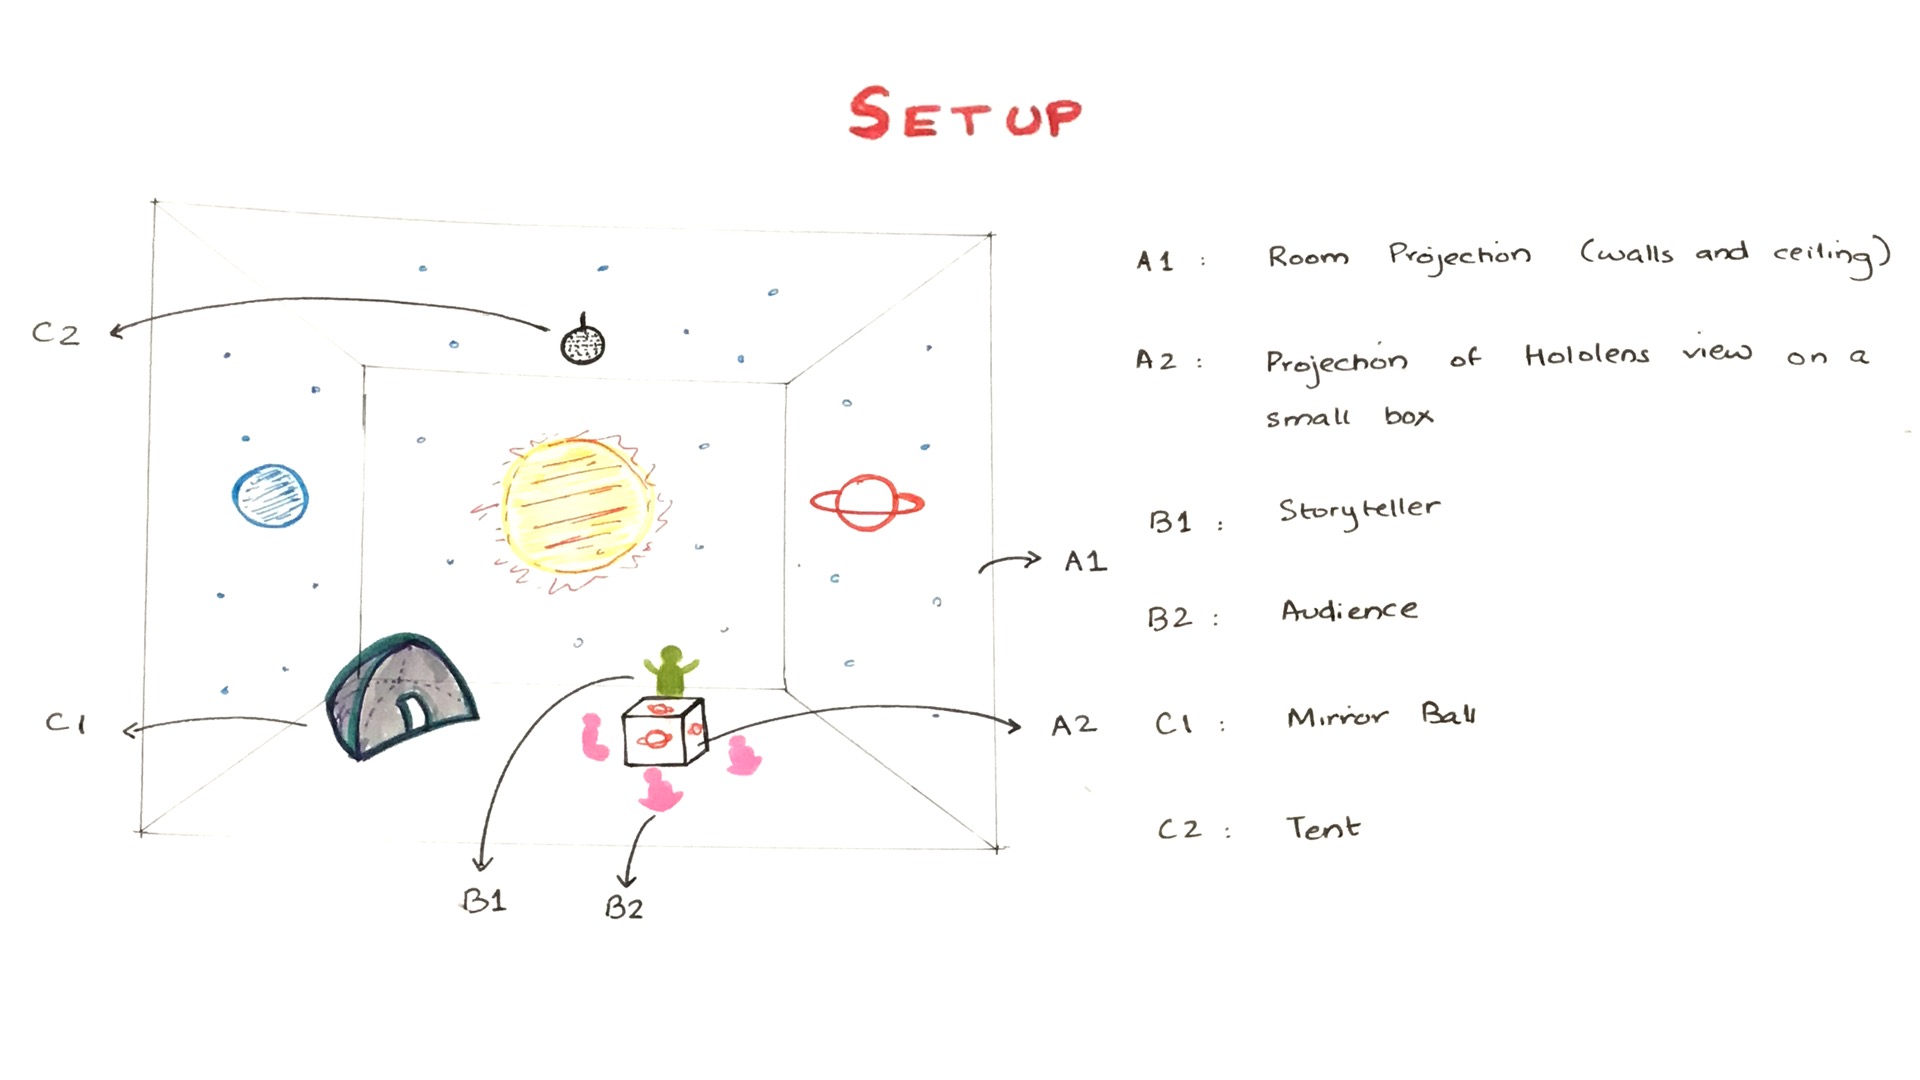 SETUP
C2
C1
B1
B2
A1
A2
A1 : Room Projection (walls and ceiling)
A2 : Projection of Hololens view on a
small box
B1 : Storyteller
B2 : Audience
C1 : Mirror Ball
C2 : Tent